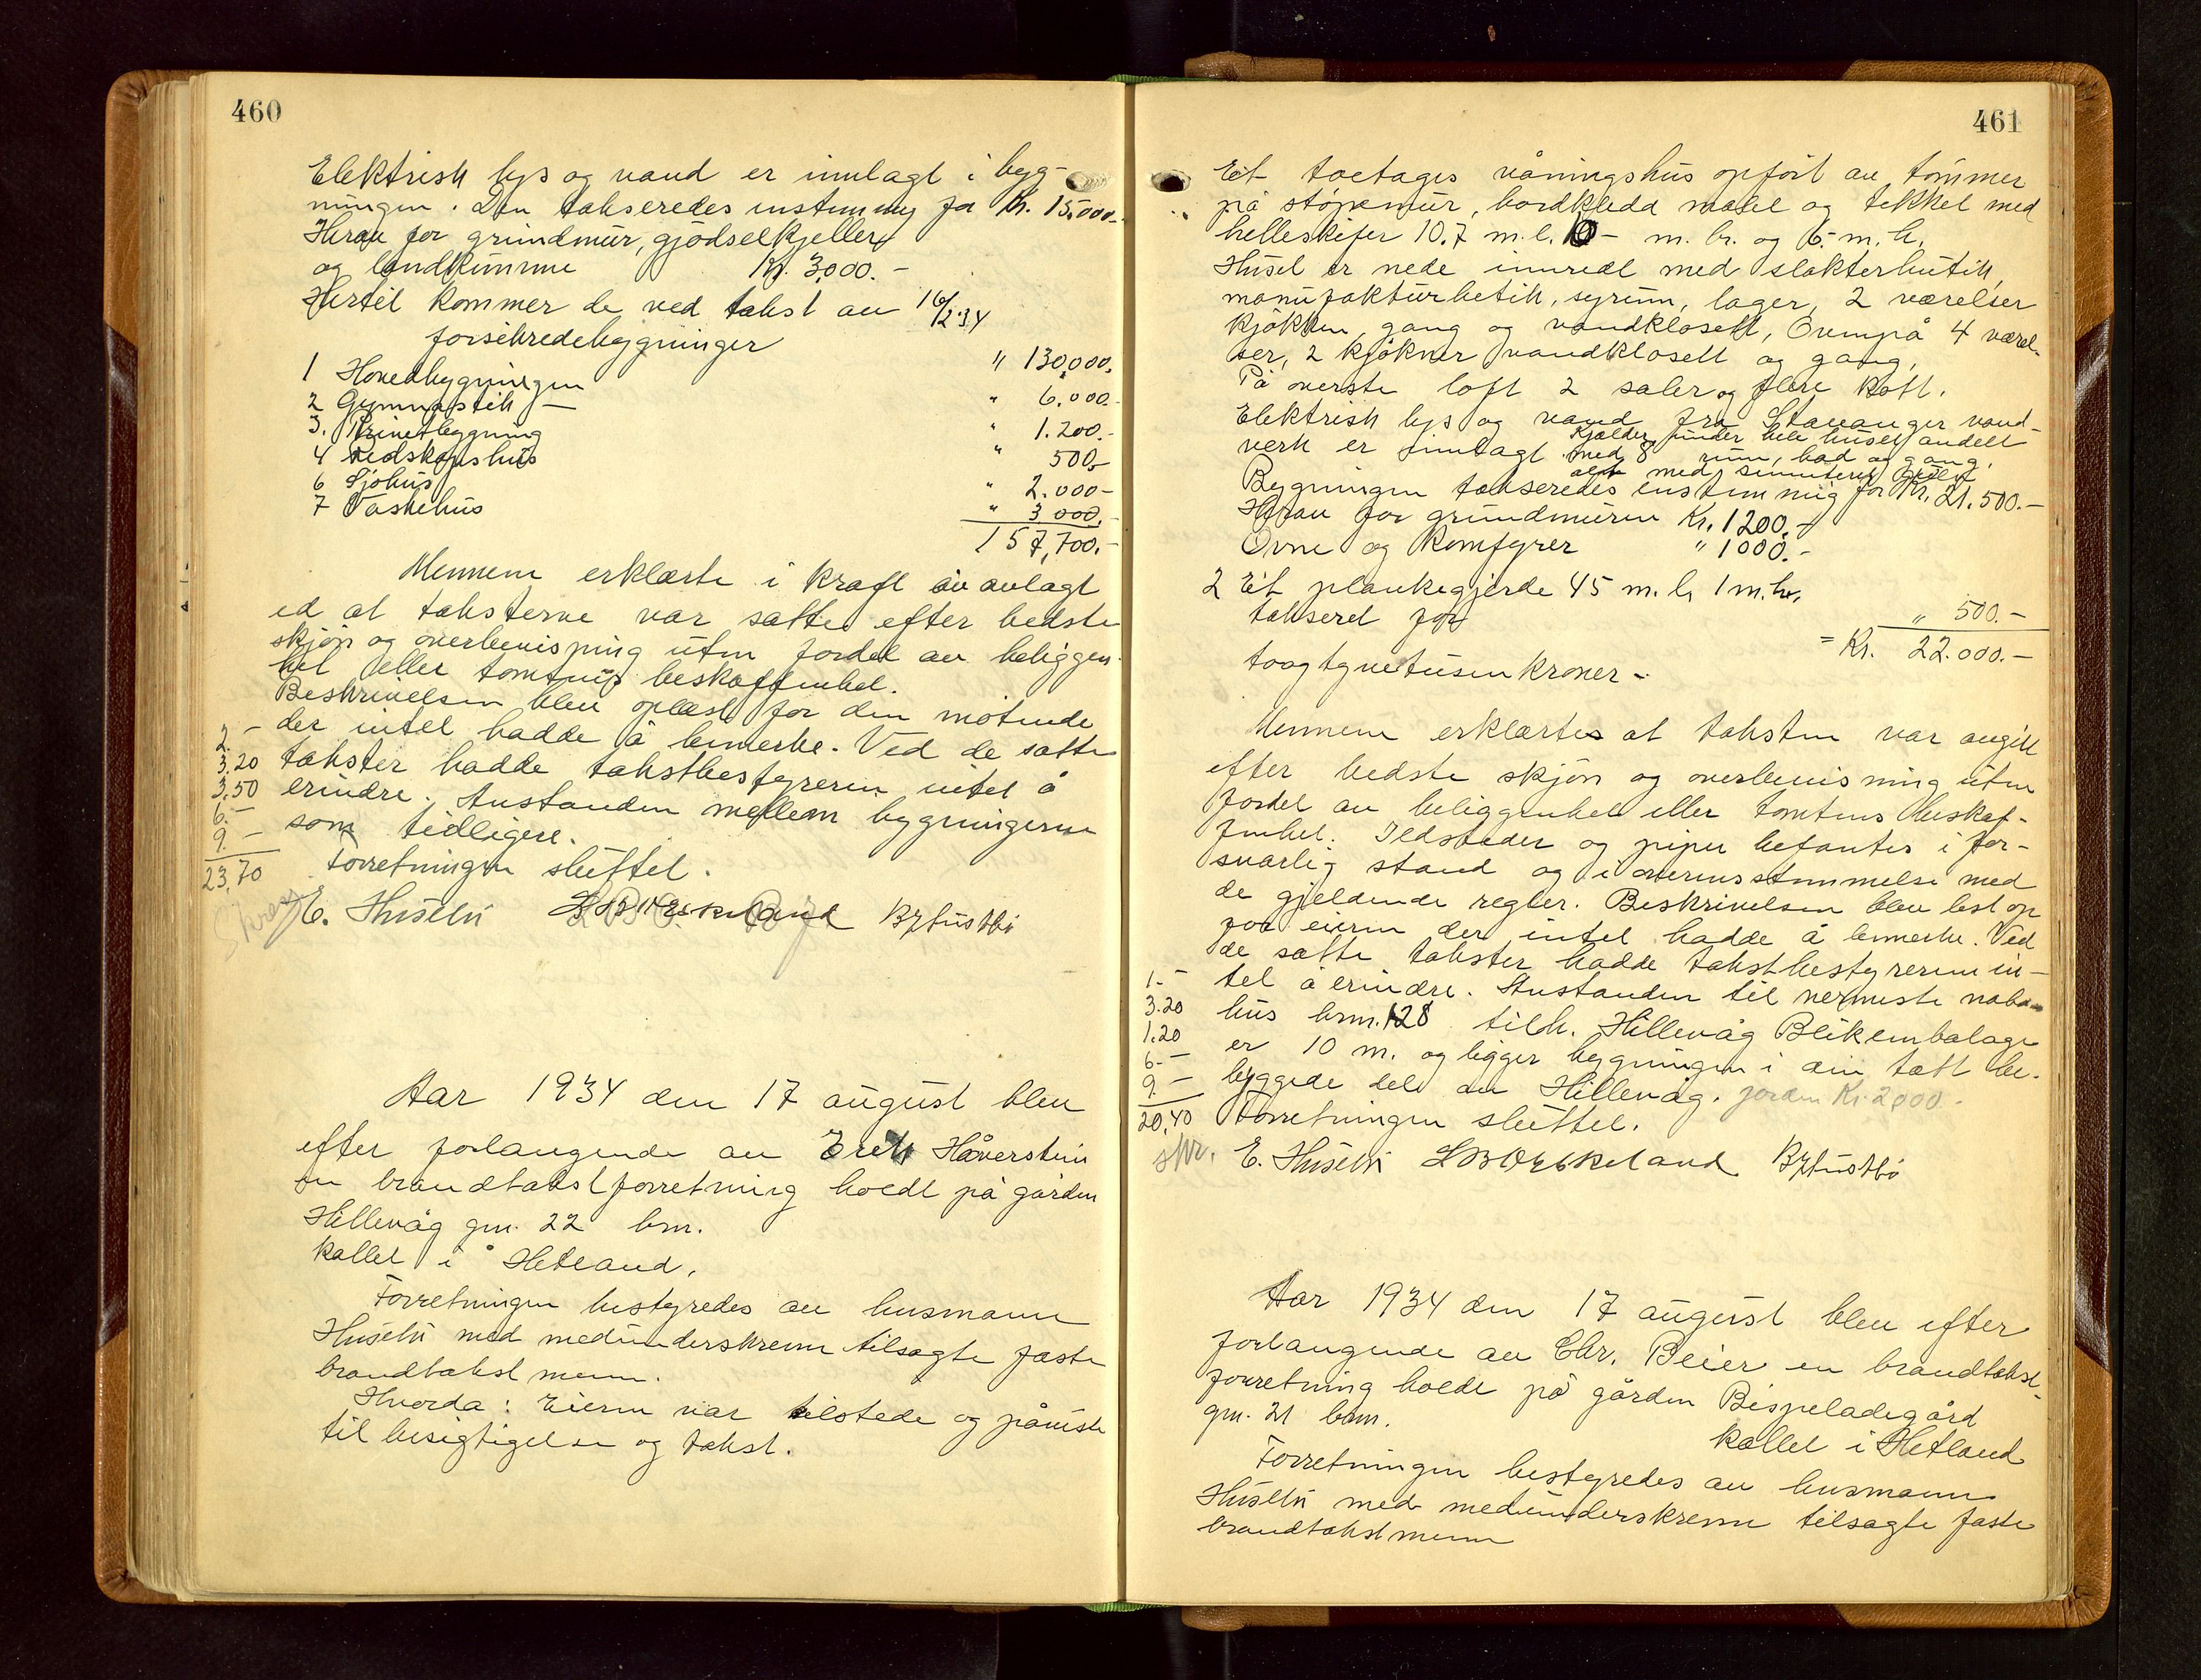 460
Elektrisk lys og vand er innlagt i byg-
ningen. Den takseredes instemmig for Kr. 15,000.-
Herav for grundmur, gjødselkjeller
og landkumme Kr. 3,000.-
Hertil kommer de ved takst av 16/2 34
forsikredebygninger
1 Hovedbygningen " 130,000.
2 Gymnastik — " 6.000.-
3. Privetbygning " 1.200.-
4 Redskapshus " 500,-
6 Sjøhus " 2.000-
7 Vaskehus " 3 000.-
157,700.-
Mennene erklærte i kraft av avlagt
ed at taksterne var satte efter bedste
skjøn og overbevisning uten fordel av beliggen-
het eller tomtens beskaffenhet.
Beskrivelsen blev oplæst for den møtende
2.- der intet hadde å bemerke. Ved de satte
3.20 takster hadde takstbestyreren intet å
3.50 erindre. Avstanden mellem bygningerne
6.- som tidligere.
9.-
23,70 Forretningen sluttet.
Skrev E. Husebø
Aar 1934 den 17 august blev
efter forlangende av Erik Håverstein
en brandtakstforretning holdt på gården
Hillevåg gnr. 22 bnr.
kallet i Hetland.
Forretningen bestyredes av husmann
Husebø med medunderskrevne tilsagte faste
brandtakst menn.
Hvorda: Eieren var tilstede og påviste
til besigtigelse og takst.
461
Et toetages våningshus opført av tømmer
på støpemur, bordkledd malet og tekket med
helleskifer 10.7 m.l. 10- m. br. og 6.- m. h.
Huset er nede innredt med slakterbutik,
manufakturbutik, syrum, lager, 2 værelser
kjøkken, gang og vandklosett, Ovenpå 4 værel-
ser, 2 kjøkner vandklosett og gang,
På øverste loft 2 saler og flere kott.
Elektrisk lys og vand fra Stavanger vand-
verk er innlagt. Kjælder under hele huset andelt
med 8 rum, bad og gang,
alt med sementeret gulv
Bygningen takseredes enstemmig for Kr. 21.500.-
Herav for grundmuren Kr. 1200.-
Ovne og komfyrer " 1000.-
2 Et plankegjerde 45 m. l. 1 m. h.
takseret for " 500.-
= Kr. 22.000.-
toogtyvetusen kroner -
Mennene erklærtes at taksten var avgitt
efter bedste skjøn og overbevisning uten
fordel av beliggenhet eller tomtens beskaf-
fenhet. Ildsteder og piper befantes i for-
svarlig stand og i overensstemmelse med
de gjeldende regler. Beskrivelsen blev lest op
for eieren der intet hadde å bemerke. Ved
de satte takster hadde takstbestyreren in-
1.- tet å erindre. Avstanden til nermeste nabo-
3.20 hus bnr. 128 tilh. Hillevåg Blikembalage
1.20 er 10 m. og ligger bygningen i den tett be-
6.-
9.- byggede del av Hillevåg. jorden Kr. 2,000.-
20,40 Forretningen sluttet.
skr. E. Husebø
Aar 1934 den 17 august blev efter
forlangende av Chr. Beier en brandtakst-
forretning holdt på gården Bispeladegård
gnr. 21 bnr.
kallet i Hetland
Forretningen bestyredes av husmann
Husebø med medunderskrevne tilsagte faste
brandtakstmenn